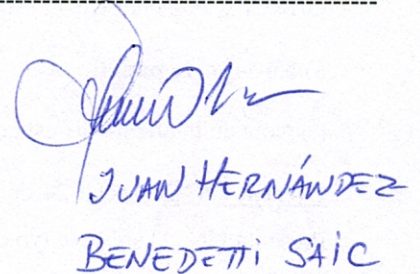 JUAN HERNÁNDEZ
BENEDETTI SAIC